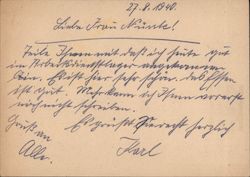 27.8.1940.
Liebe Frau Münte!
Teile Ihnen mit daß ich heute gut
im Arbeitsdienstlager angekommen
bin. Es ist hier sehr schön. das Essen
ist gut. Mehr kann ich Ihnen vorerst
noch nicht schreiben.
Gruß an Es grüßt Sie recht herzlich
Alle. Karl